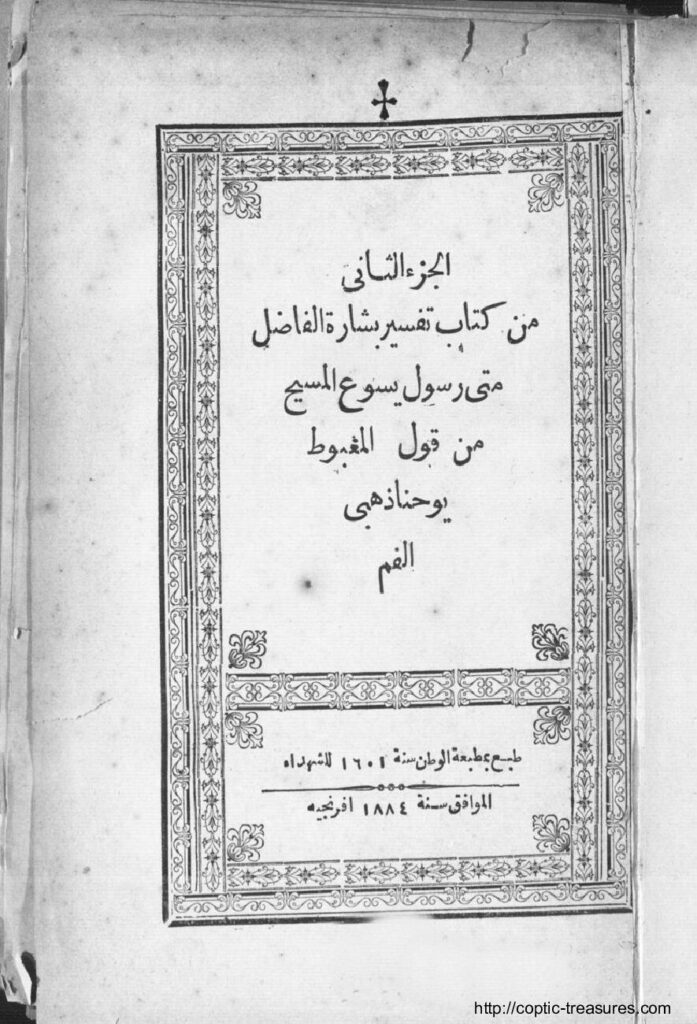 الجزء الثانى
من كتاب تفسير بشارة الفاضل
متى رسول يسوع المسيح
من قول المغبوط
يوحنا ذهبى
الفم
طبع بمطبعة الوطن سنة ١٦٠١ للشهداء
الموافق سنة ١٨٨٤ افرنجيه
http://coptic-treasures.com